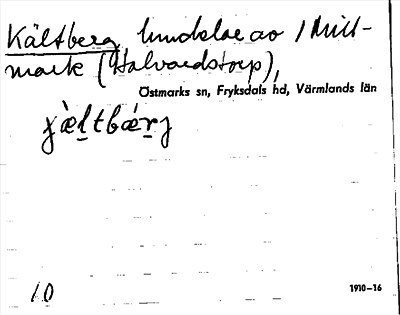 Kältberg hemdelar av 1 Mitt-
mark (Halvardstorp),
Östmarks sn, Fryksdals hd, Värmlands län
10
1910–16